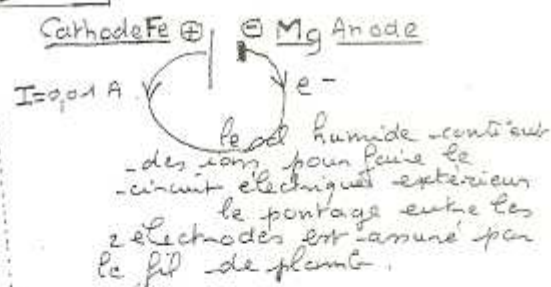 Cathode Fe ⊕ ⊖ Mg Anode
I=0,01 A e -
le sol humide contient
des ions pour faire le
circuit électrique extérieur
le pontage entre les
2 électrodes est assuré par
le fil de plomb.